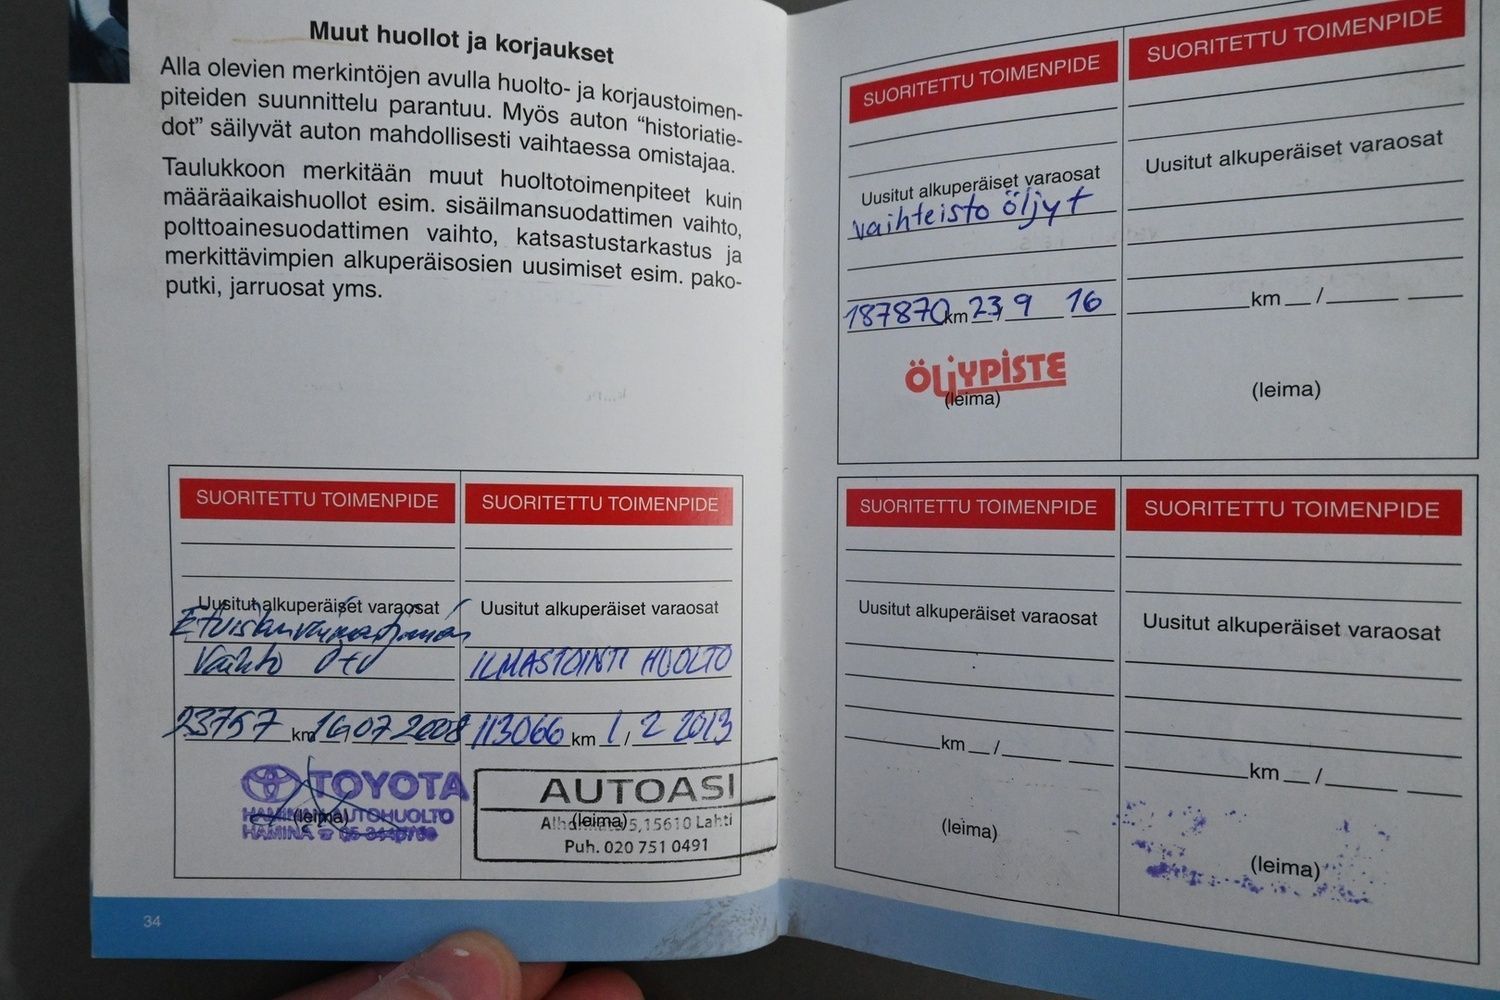 Muut huollot ja korjaukset
Alla olevien merkintöjen avulla huolto- ja korjaustoimen-
piteiden suunnittelu parantuu. Myös auton “historiatie-
dot” säilyvät auton mahdollisesti vaihtaessa omistajaa.
Taulukkoon merkitään muut huoltotoimenpiteet kuin
määräaikaishuollot esim. sisäilmansuodattimen vaihto,
polttoainesuodattimen vaihto, katsastustarkastus ja
merkittävimpien alkuperäisosien uusimiset esim. pako-
putki, jarruosat yms.
SUORITETTU TOIMENPIDE
Uusitut alkuperäiset varaosat
Vaihto
23757 km 16.07.2008
TOYOTA
HAMINAN AUTOHUOLTO
(leima)
HAMINA ☎ 05
SUORITETTU TOIMENPIDE
Uusitut alkuperäiset varaosat
ILMASTOINTI HUOLTO
113066 km 1 / 2 2013
AUTOASI
(leima)
5, 15610 Lahti
Puh. 020 751 0491
34
SUORITETTU TOIMENPIDE
Uusitut alkuperäiset varaosat
vaihteisto öljyt
187870 km 23 / 9 16
ÖLJYPISTE
(leima)
SUORITETTU TOIMENPIDE
Uusitut alkuperäiset varaosat
km /
(leima)
SUORITETTU TOIMENPIDE
Uusitut alkuperäiset varaosat
km /
(leima)
SUORITETTU TOIMENPIDE
Uusitut alkuperäiset varaosat
km /
(leima)